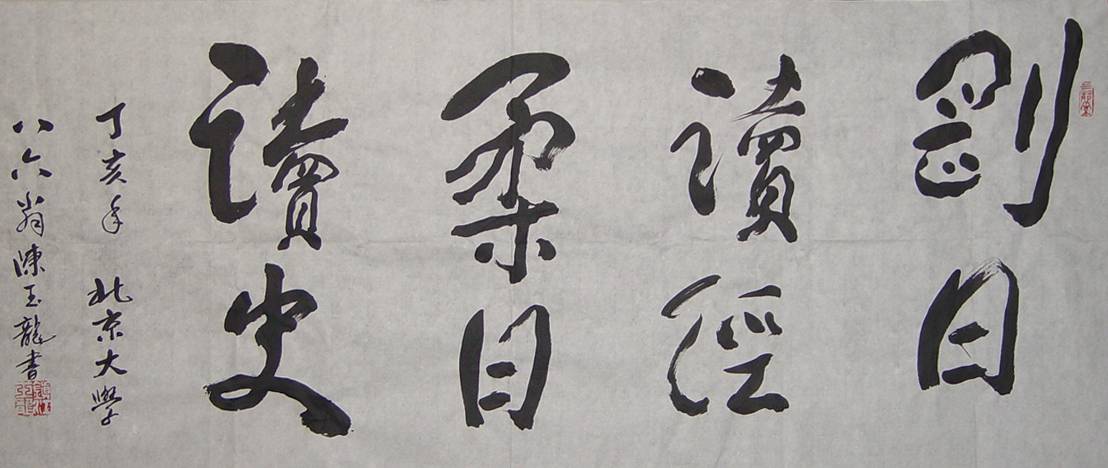 剛日
讀經
柔日
讀史
丁亥年 北京大學
八六翁陳玉龍書